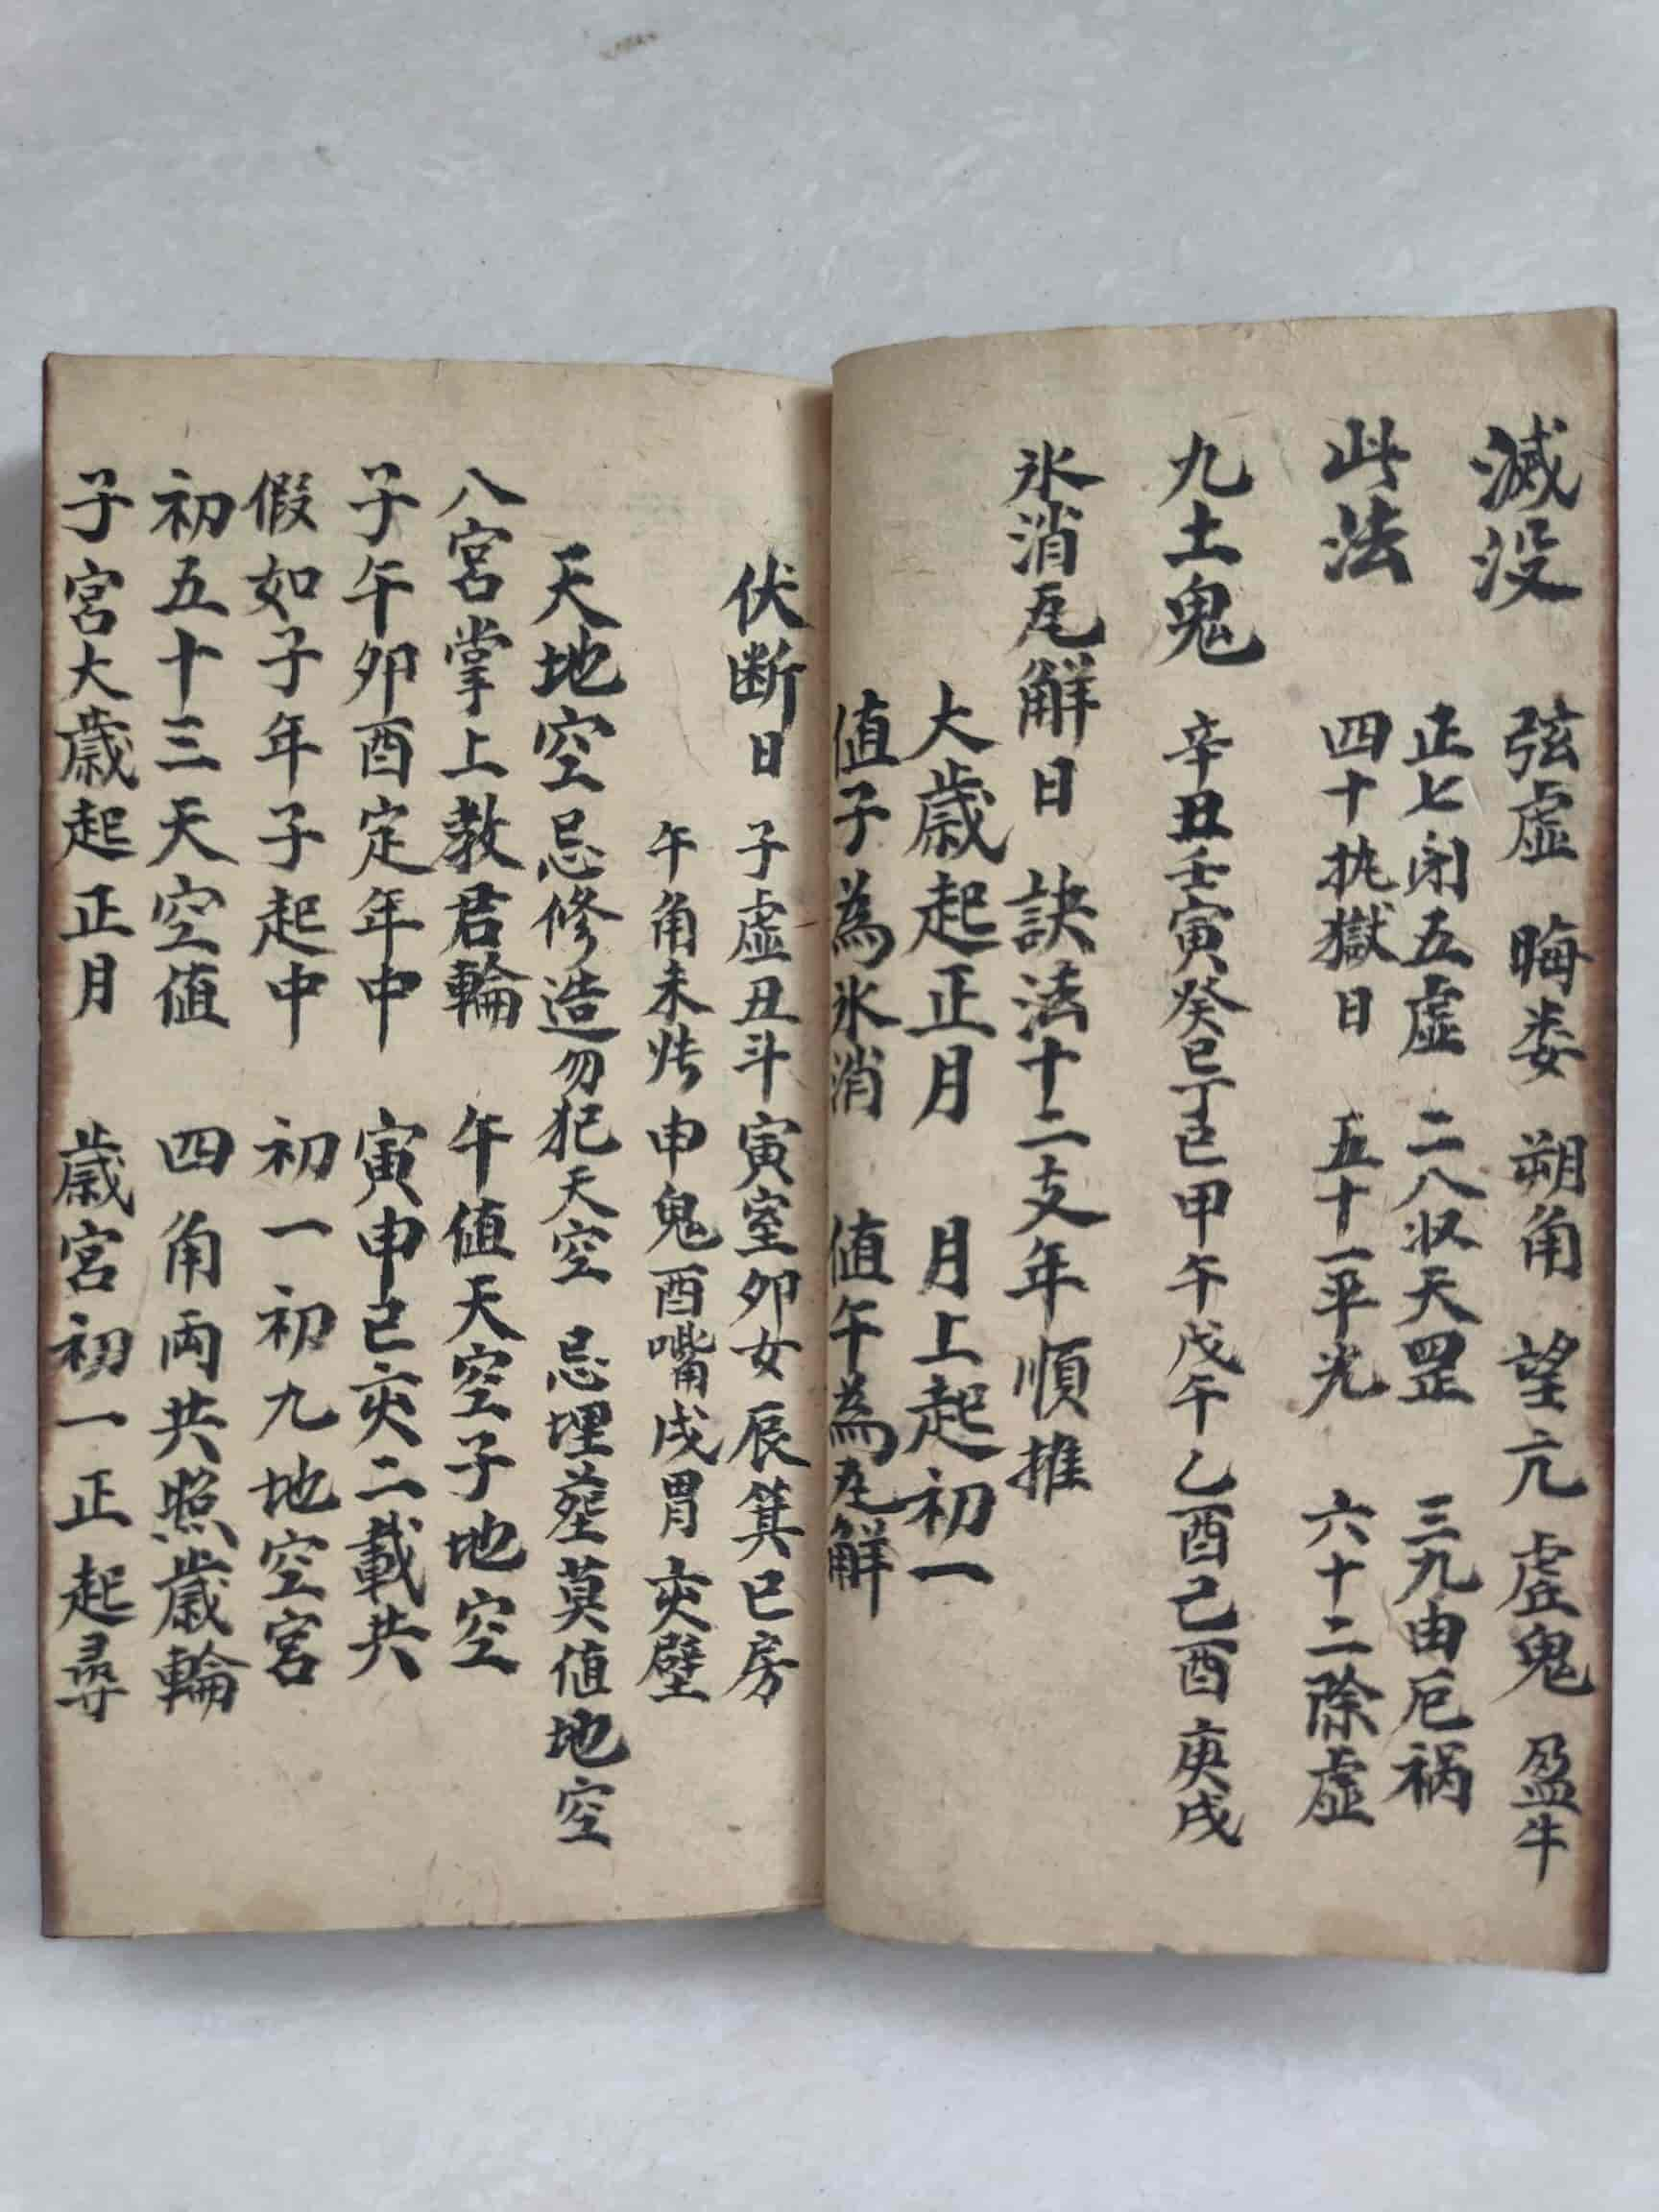 滅没 弦虚 晦娄 朔角 望亢 虚鬼 盈牛
此法
正七闭五虚 二八収天罡 三九由厄祸
四十执獄日 五十一平光 六十二除虚
九土鬼 辛丑壬寅癸巳丁巳甲午戊午乙酉己酉庚戌
氷消瓦解日 訣法十二支年順推
大歳起正月 月上起初一
値子為氷消 値午為瓦解
伏断日 子虚丑斗寅室卯女辰箕巳房
午角未张申鬼酉嘴戌胃亥壁
天地空 忌修造勿犯天空 忌埋塟莫値地空
八宮掌上教君輪 午値天空子地空
子午卯酉定年中 寅申巳亥二載共
假如子年子起中 初一初九地空宮
初五十三天空値 四角両共照歳輪
子宮大歳起正月 歳宮初一正起尋